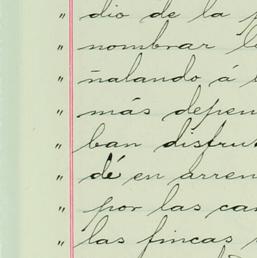 " dio de la
" nombrar
" ñalando á
" más depen
" ban disfrut
" dé en arren
" por las ca
" las fincas